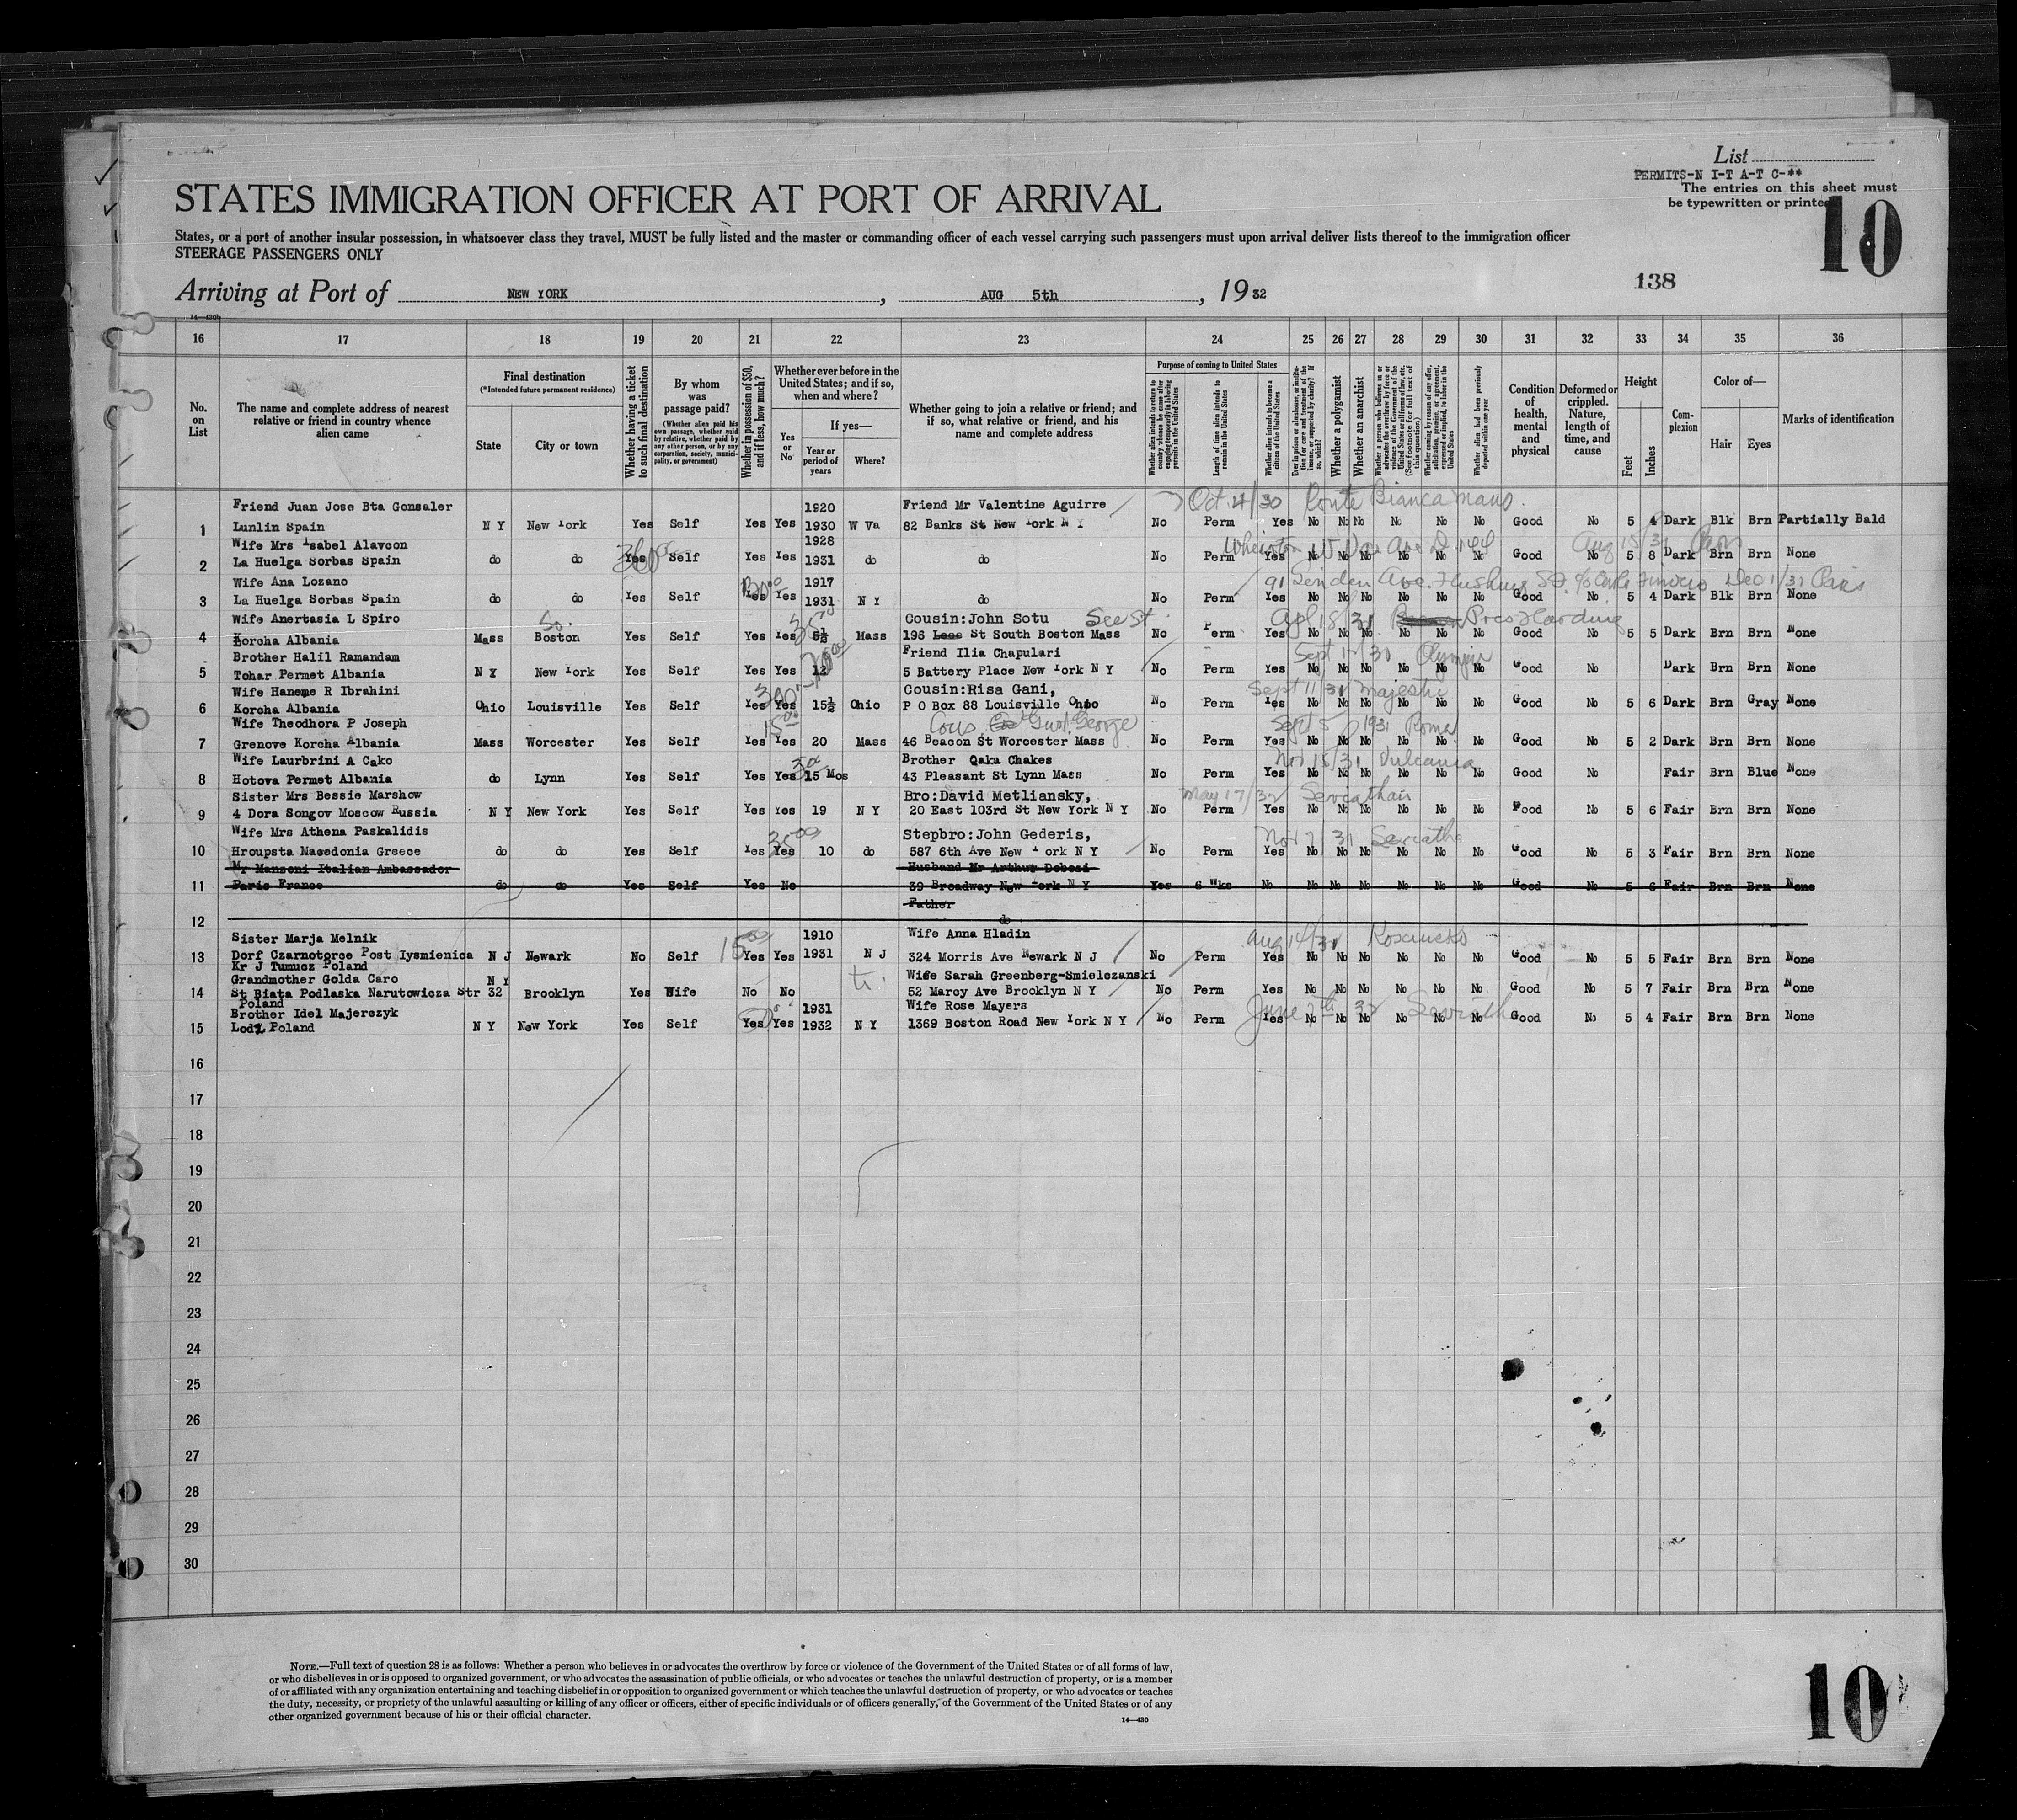 List
PERMITS-N I-T A-T C-**
The entries on this sheet must
be typewritten or printed
10
STATES IMMIGRATION OFFICER AT PORT OF ARRIVAL
States, or a port of another insular possession, in whatsoever class they travel, MUST be fully listed and the master or commanding officer of each vessel carrying such passengers must upon arrival deliver lists thereof to the immigration officer
STEERAGE PASSENGERS ONLY
138
Arriving at Port of NEW YORK, AUG 5th, 1932
14—430b
16 17 18 19 20 21 22 23 24 25 26 27 28 29 30 31 32 33 34 35 36
No. on List
The name and complete address of nearest relative or friend in country whence alien came
Final destination
(*Intended future permanent residence)
State City or town
Whether having a ticket to such final destination
By whom was passage paid?
(Whether alien paid his own passage, whether paid by relative, whether paid by any other person, or by any corporation, society, municipality, or government)
Whether in possession of $50, and if less, how much?
Whether ever before in the United States; and if so, when and where?
Yes or No
If yes—
Year or period of years
Where?
Whether going to join a relative or friend; and if so, what relative or friend, and his name and complete address
Purpose of coming to United States
Whether alien intends to return to country whence he came after engaging temporarily in laboring pursuits in the United States
Length of time alien intends to remain in the United States
Whether alien intends to become a citizen of the United States
Ever in prison or almshouse, or institution for care and treatment of the insane, or supported by charity? If so, which?
Whether a polygamist
Whether an anarchist
Whether a person who believes in or advocates the overthrow by force or violence of the Government of the United States or all forms of law, etc. (See footnote for full text of this question)
Whether coming by reason of any offer, solicitation, promise, or agreement, expressed or implied, to labor in the United States
Whether alien had been previously deported within one year
Condition of health, mental and physical
Deformed or crippled. Nature, length of time, and cause
Height
Feet Inches
Complexion
Color of—
Hair Eyes
Marks of identification
Friend Juan Jose Bta Gonsaler 1920 Friend Mr Valentine Aguirre Oct 4/30 Conte Biancamano
1 Lunlin Spain N Y New York Yes Self Yes Yes 1930 W Va 82 Banks St New York N Y No Perm Yes No No No No No No Good No 5 4 Dark Blk Brn Partially Bald
Wife Mrs Isabel Alavcon 1928 Aug 15/31 Paris
2 La Huelga Sorbas Spain do do Yes Self Yes Yes 1931 do do No Perm Yes No No No No No No Good No 5 8 Dark Brn Brn None
Wife Ana Lozano 1917 91 Linden Ave. Flushing Dec 1/31 Paris
3 La Huelga Sorbas Spain do do Yes Self Yes Yes 1931 N Y do No Perm Yes No No No No No No Good No 5 4 Dark Blk Brn None
Wife Anertasia L Spiro So. Cousin:John Sotu See St Apl 18/31 Pres Harding
4 Korcha Albania Mass Boston Yes Self Yes Yes 5½ Mass 196 St South Boston Mass No Perm Yes No No No No No No Good No 5 5 Dark Brn Brn None
Brother Halil Ramandam Friend Ilia Chapulari Sept 30 Olympic
5 Tohar Permet Albania N Y New York Yes Self Yes Yes 12 5 Battery Place New York N Y No Perm Yes No No No No No No Good No Dark Brn Brn None
Wife Haneme R Ibrahini Cousin:Risa Gani, Sept 11/31 Majestic
6 Korcha Albania Ohio Louisville Yes Self Yes Yes 15½ Ohio P O Box 88 Louisville Ohio No Perm Yes No No No No No No Good No 5 6 Dark Brn Gray None
Wife Theodhora P Joseph Cous Gust George Sept 5 1931 Roma
7 Grenove Korcha Albania Mass Worcester Yes Self Yes Yes 20 Mass 46 Beacon St Worcester Mass No Perm Yes No No No No No No Good No 5 2 Dark Brn Brn None
Wife Laurbrini A Cako Brother Qaka Chakes Nov 15/31 Vulcania
8 Hotova Permet Albania do Lynn Yes Self Yes Yes 15 Mos 43 Pleasant St Lynn Mass No Perm Yes No No No No No No Good No Fair Brn Blue None
Sister Mrs Bessie Marshow Bro:David Metliansky, May 17/32
9 4 Dora Songov Moscow Russia N Y New York Yes Self Yes Yes 19 N Y 20 East 103rd St New York N Y No Perm Yes No No No No No No Good No 5 6 Fair Brn Brn None
Wife Mrs Athena Paskalidis Stepbro:John Gederis, Nov 7 31
10 Hroupsta Macedonia Greece do do Yes Self Yes Yes 10 do 587 6th Ave New York N Y No Perm Yes No No No No No No Good No 5 3 Fair Brn Brn None
Mr Manzoni Italian Ambassador Husband Mr Arthur Debosi
11 Paris France do do Yes Self Yes No 39 Broadway New York N Y Yes 6 Wks No No No No No No No Good No 5 6 Fair Brn Brn None
Father
12 do
Sister Marja Melnik 1910 Wife Anna Hladin Aug 14/31 Kosciusko
13 Dorf Czarnotorce Post Iysmienica N J Newark No Self Yes Yes 1931 N J 324 Morris Ave Newark N J No Perm Yes No No No No No No Good No 5 5 Fair Brn Brn None
Kr J Tumucz Poland
Grandmother Golda Caro N Y Wife Sarah Greenberg-Smielczanski
14 St Biata Podlaska Narutowicza Str 32 Brooklyn Yes Wife No No 52 Marcy Ave Brooklyn N Y No Perm Yes No No No No No No Good No 5 7 Fair Brn Brn None
Poland
Brother Idel Majerczyk 1931 Wife Rose Mayers
15 Lodz Poland N Y New York Yes Self Yes Yes 1932 N Y 1369 Boston Road New York N Y No Perm Yes No No No No No No Good No 5 4 Fair Brn Brn None
16
17
18
19
20
21
22
23
24
25
26
27
28
29
30
NOTE.—Full text of question 28 is as follows: Whether a person who believes in or advocates the overthrow by force or violence of the Government of the United States or of all forms of law,
or who disbelieves in or is opposed to organized government, or who advocates the assassination of public officials, or who advocates or teaches the unlawful destruction of property, or is a member
of or affiliated with any organization entertaining and teaching disbelief in or opposition to organized government or which teaches the unlawful destruction of property, or who advocates or teaches
the duty, necessity, or propriety of the unlawful assaulting or killing of any officer or officers, either of specific individuals or of officers generally, of the Government of the United States or of any
other organized government because of his or their official character.
14—430
10